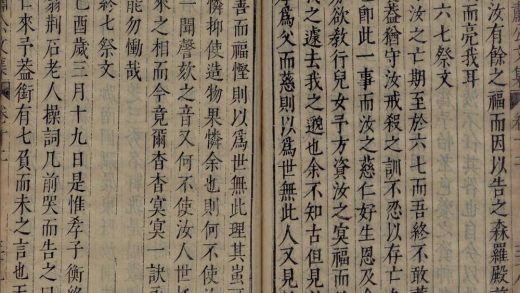 肅公文集
汝有餘之福而因以告之森羅殿前
而亮我耳
六七祭文
汝之亡期至於六七而吾終不敢薦
益猶守汝戒殺之訓不忍以存亡
之即此一事而汝之慈仁好生恩及
欲教行兒女予方資汝之冥福而
之遽去我之邈也余不知古但見
為父而慈則以為世無此人又見
善而福慳則以為世無此理其蚩
憐抑使造物果憐余也則何不使
一聞聲欬之音又何不使汝人世
來之相而今竟爾杳杳冥冥一訣
能勿慟哉
終七祭文
己酉歲三月十九日是惟孝子衡終
翁荆石老人操詞几前哭而告之曰
仁來予蓋銜有七負而未之言也
公文集